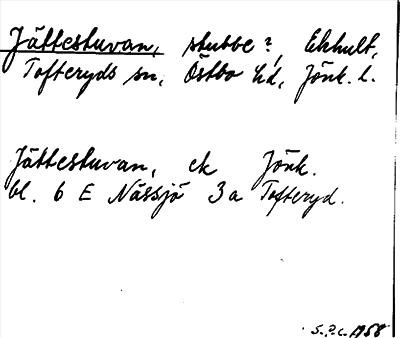 Jättestuvan, stubbe?, Ekhult,
Tofteryds sn, Östbo hd, Jönk. l.
Jättestuvan, ek Jönk.
bl. 6 E Nässjö 3a Tofteryd.
S.P.C. 1958